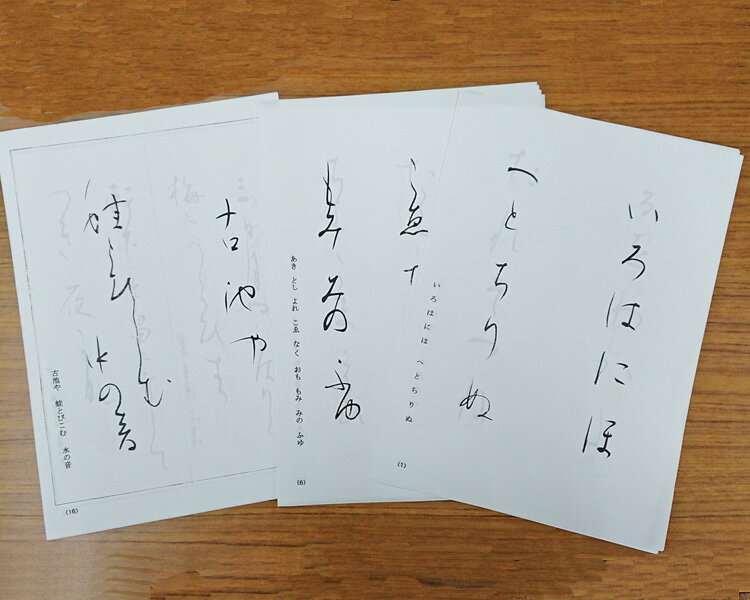 いろはにほ
へとちりぬ
いろはにほ へとちりぬ
(1)
こゑ
もみ みの ふゆ
あき とし よれ こゑ なく おも もみ みの ふゆ
(6)
古池や
蛙とびこむ 水の音
古池や 蛙とびこむ 水の音
(16)